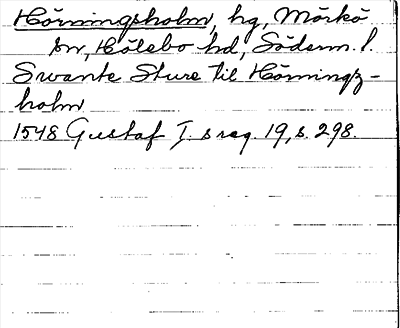 Hörningsholm, hg, Mörkö
sn, Hölebo hd, Söderm. l.
Swante Sture til Hörningz-
holm
1548 Gustaf I. s reg. 19, s. 298.